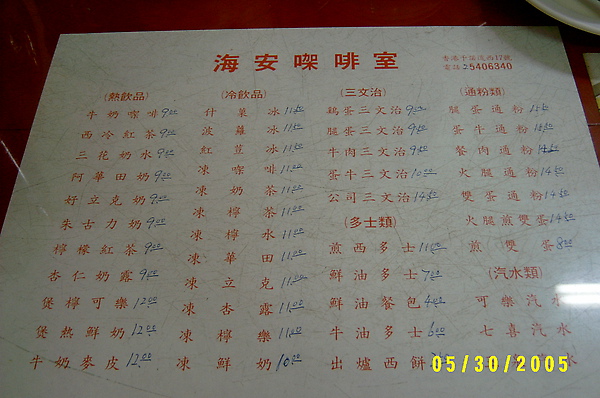 海安㗎啡室
香港干諾道西17號
電話:25406340
(熱飲品)
牛奶㗎啡 9.00
西冷紅茶 9.00
三花奶水 9.00
阿華田奶 9.00
好立克奶 9.00
朱古力奶 9.00
檸檬紅茶 9.00
杏仁奶露 9.00
煲檸可樂 12.00
煲熱鮮奶 12.00
牛奶麥皮 12.00
(冷飲品)
什菓冰 11.00
波蘿冰 11.00
紅荳冰 11.00
凍㗎啡 11.00
凍奶茶 11.00
凍檸茶 11.00
凍檸水 11.00
凍華田 11.00
凍立克 11.00
凍杏露 11.00
凍檸樂 11.00
凍鮮奶 10.00
(三文治)
鷄蛋三文治 9.00
腿蛋三文治 9.00
牛肉三文治 9.00
蛋牛三文治 10.00
公司三文治 14.00
(多士類)
煎西多士 11.00
鮮油多士 7.00
鮮油餐包 4.00
牛油多士 6.00
出爐西餅
(通粉類)
腿蛋通粉
蛋牛通粉
餐肉通粉
火腿通粉 14.00
雙蛋通粉 14.00
火腿煎雙蛋 14.00
煎雙蛋 8.00
(汽水類)
可樂汽水
七喜汽水
水
05/30/2005